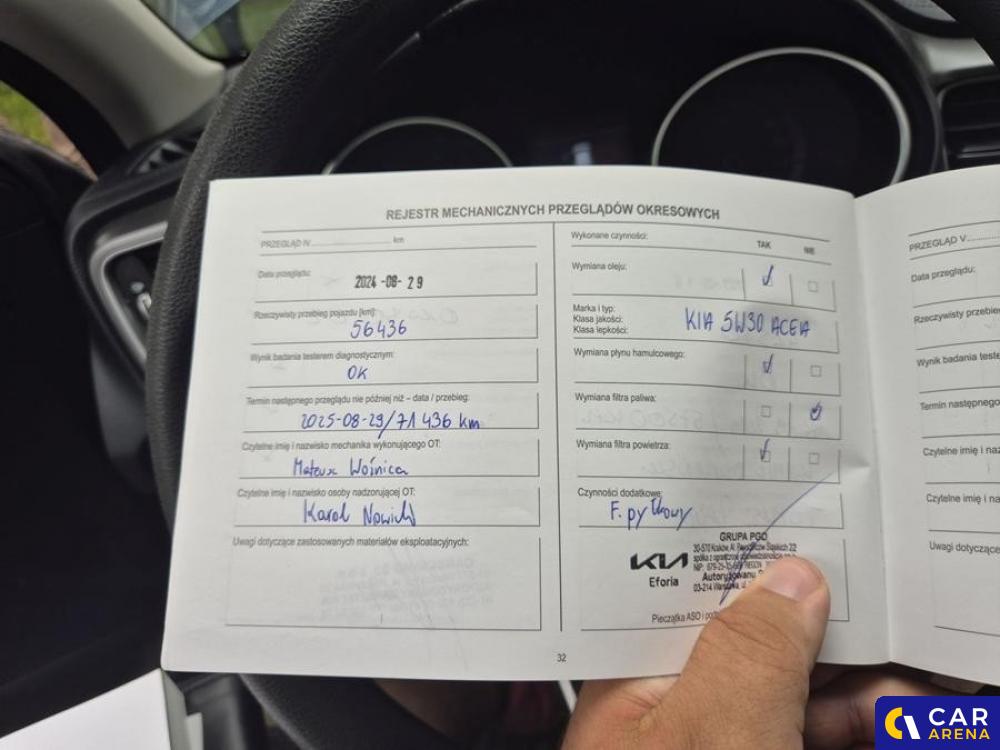 REJESTR MECHANICZNYCH PRZEGLĄDÓW OKRESOWYCH
PRZEGLĄD IV .......... km
Data przeglądu:
2024-08-29
Rzeczywisty przebieg pojazdu [km]:
56436
Wynik badania testerem diagnostycznym:
OK
Termin następnego przeglądu nie później niż – data / przebieg:
2025-08-29/71 436 km
Czytelne imię i nazwisko mechanika wykonującego OT:
Mateusz Woźnica
Czytelne imię i nazwisko osoby nadzorującej OT:
Karol Nowicki
Uwagi dotyczące zastosowanych materiałów eksploatacyjnych:
Wykonane czynności:
TAK NIE
Wymiana oleju:
Marka i typ:
Klasa jakości:
Klasa lepkości:
KIA 5W30 ACEA
Wymiana płynu hamulcowego:
Wymiana filtra paliwa:
Wymiana filtra powietrza:
Czynności dodatkowe:
F. pyłkowy
KIA
Eforia
GRUPA PGD
30-570 Kraków, Al.
spółka z ograniczoną odpowiedzialnością
NIP: REGON
Autoryzowany
03-214 Warszawa, ul.
Pieczątka ASO i
32
PRZEGLĄD V ..........
Data przeglądu:
Rzeczywisty
Wynik badania
Termin następnego
Czytelne imię i
Czytelne imię i
Uwagi
CAR
ARENA